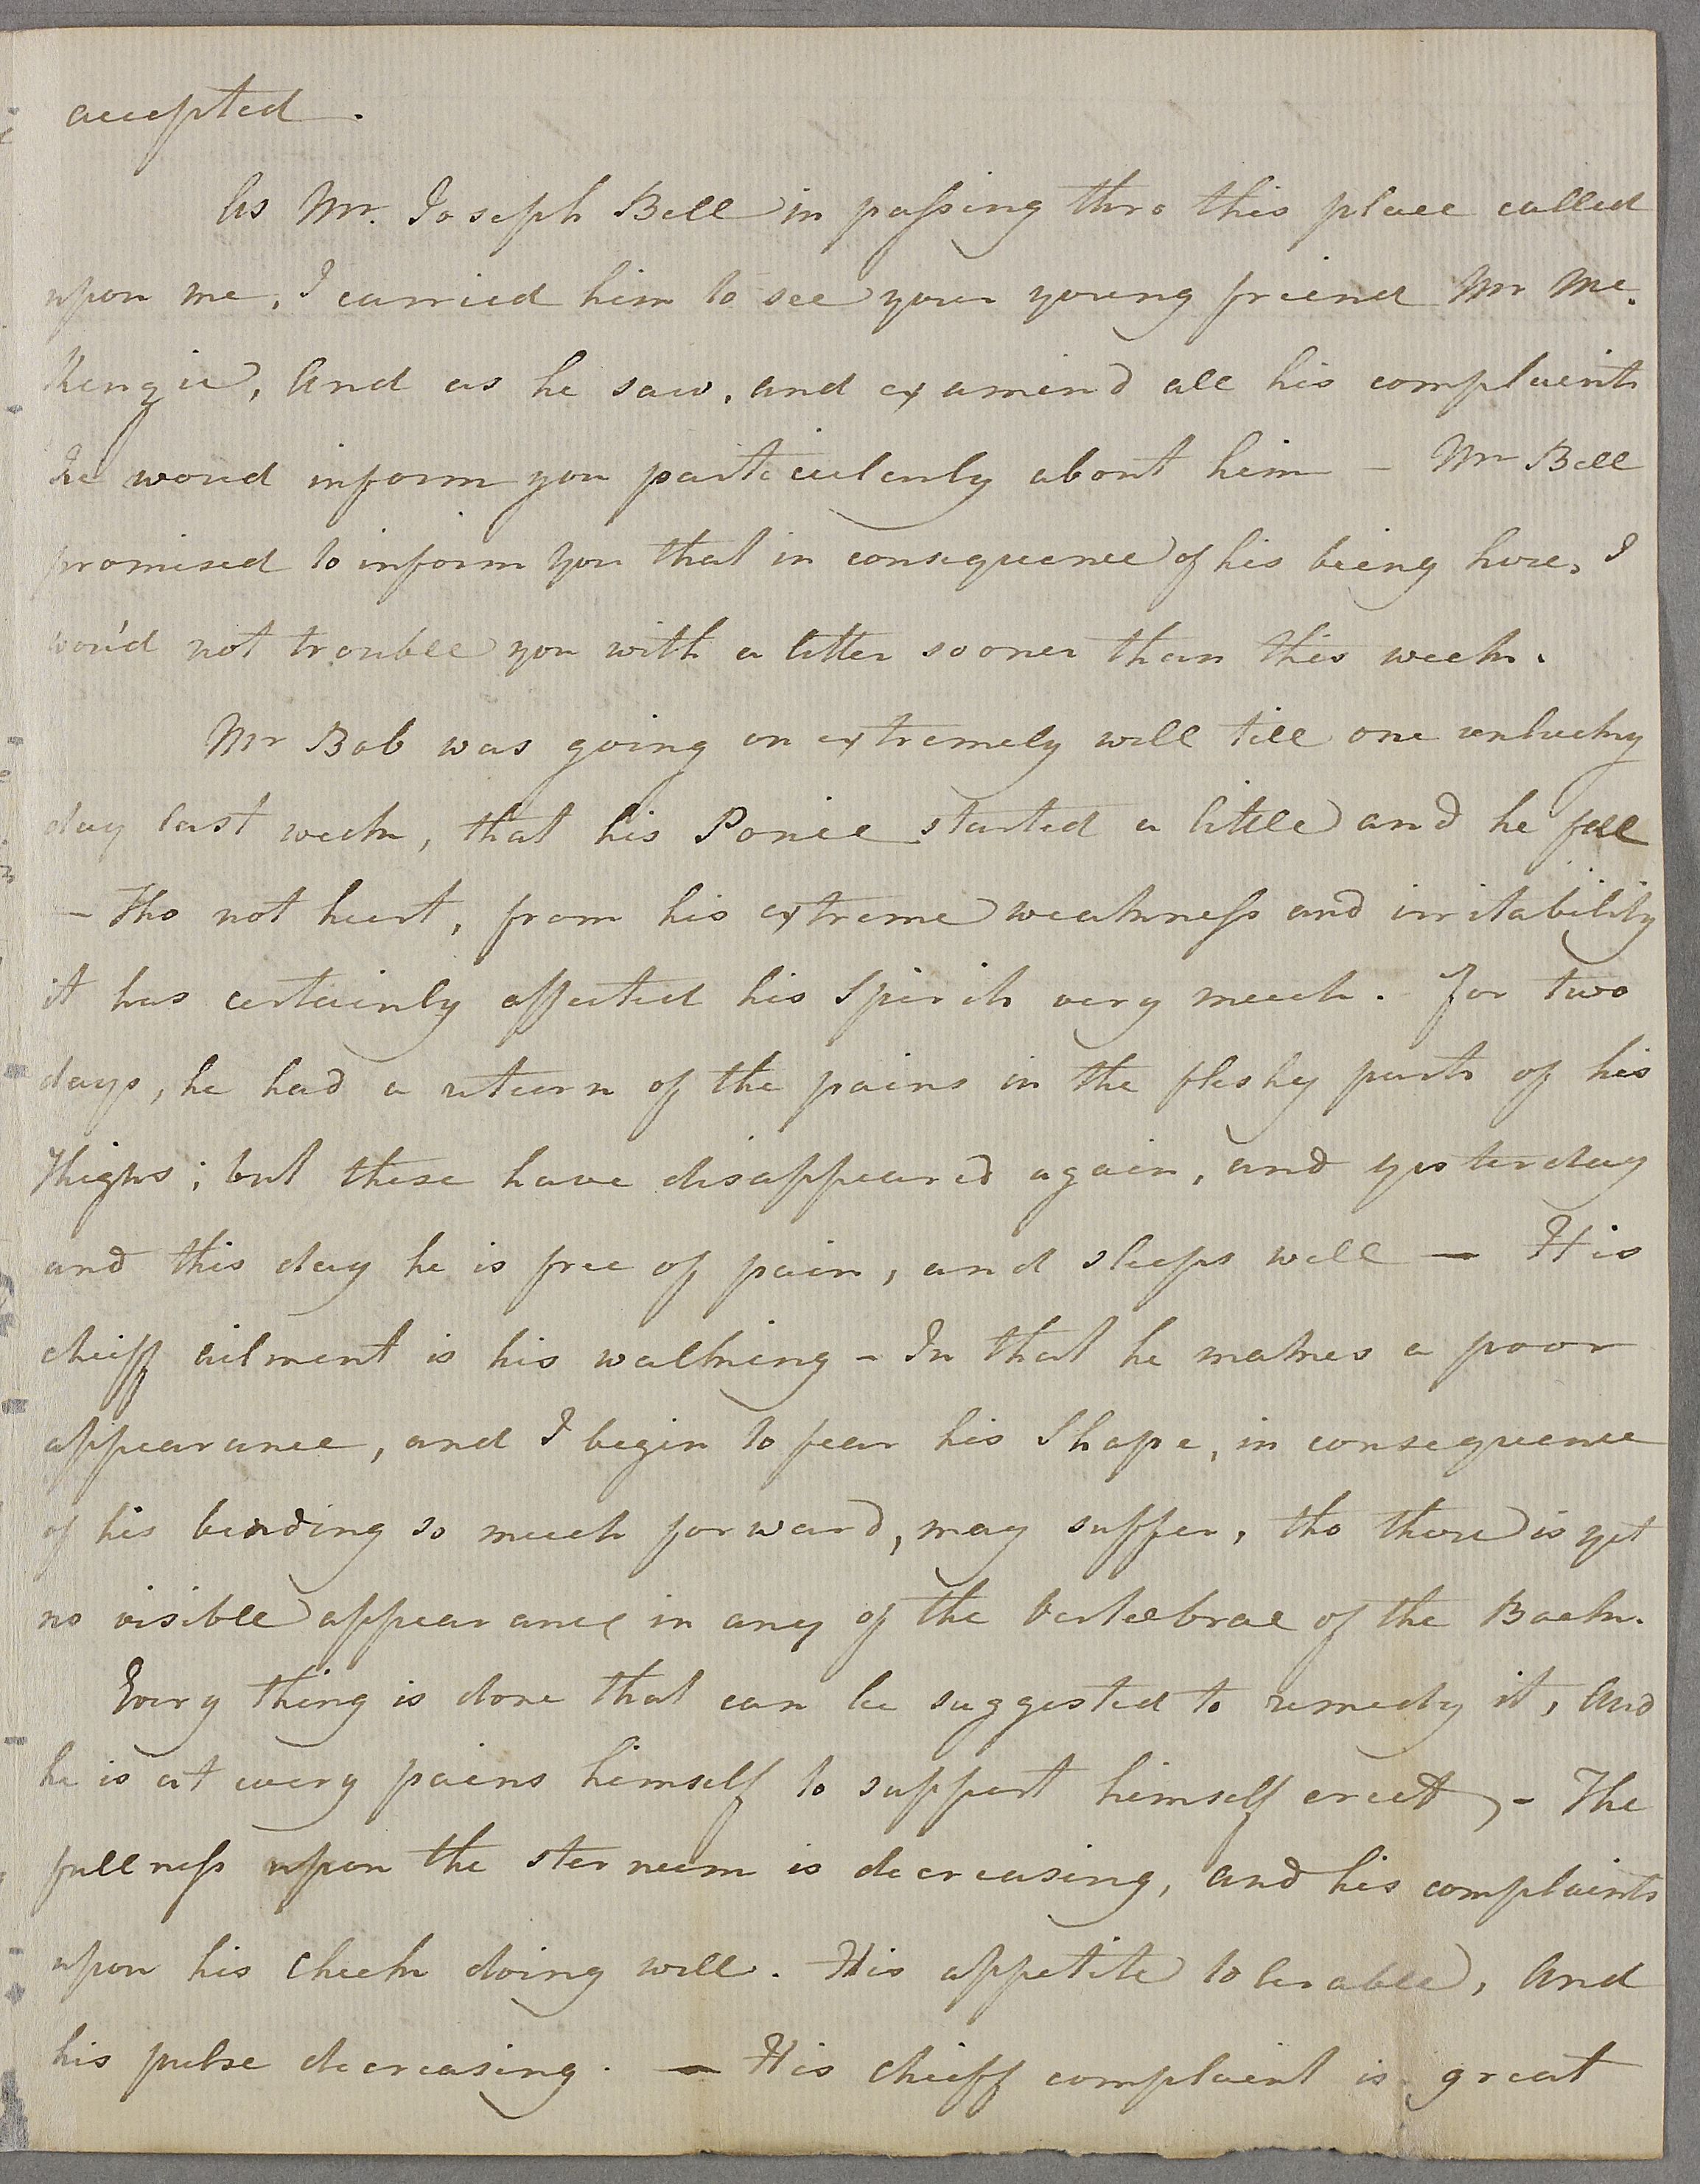 accepted.
As Mr. Joseph Bell in passing thro this place called
upon me, I carried him to see your young friend Mr Mc.
Kenzie, And as he saw, and examin'd all his complaints
he woud inform you particularly about him - Mr Bell
promised to inform you that in consequence of his being here, I
wou'd not trouble you with a letter sooner than this week.
Mr Bob was going on extremely well till one unlucky
day last week, that his Ponie started a little and he fell
- Tho not hurt, from his extreme weakness and irritability
it has certainly affected his Spirits very much. For two
days, he had a return of the pains in the fleshy parts of his
Thighs; but these have disappeared again, and yesterday
and this day he is free of pain, and sleeps well — His
chieff ailment is his walking - In that he makes a poor
appearance, and I begin to fear his Shape, in consequence
of his bending so much forward, may suffer, tho there is yet
no visible appearance in any of the Vertebrae of the Back.
Every thing is done that can be suggested to remedy it, And
he is at every pains himself to support himself erect, - The
fullness upon the sternum is decreasing, And his complaints
upon his Cheek doing well. His appetite tolerable, And
his pulse decreasing. — His chieff complaint is great